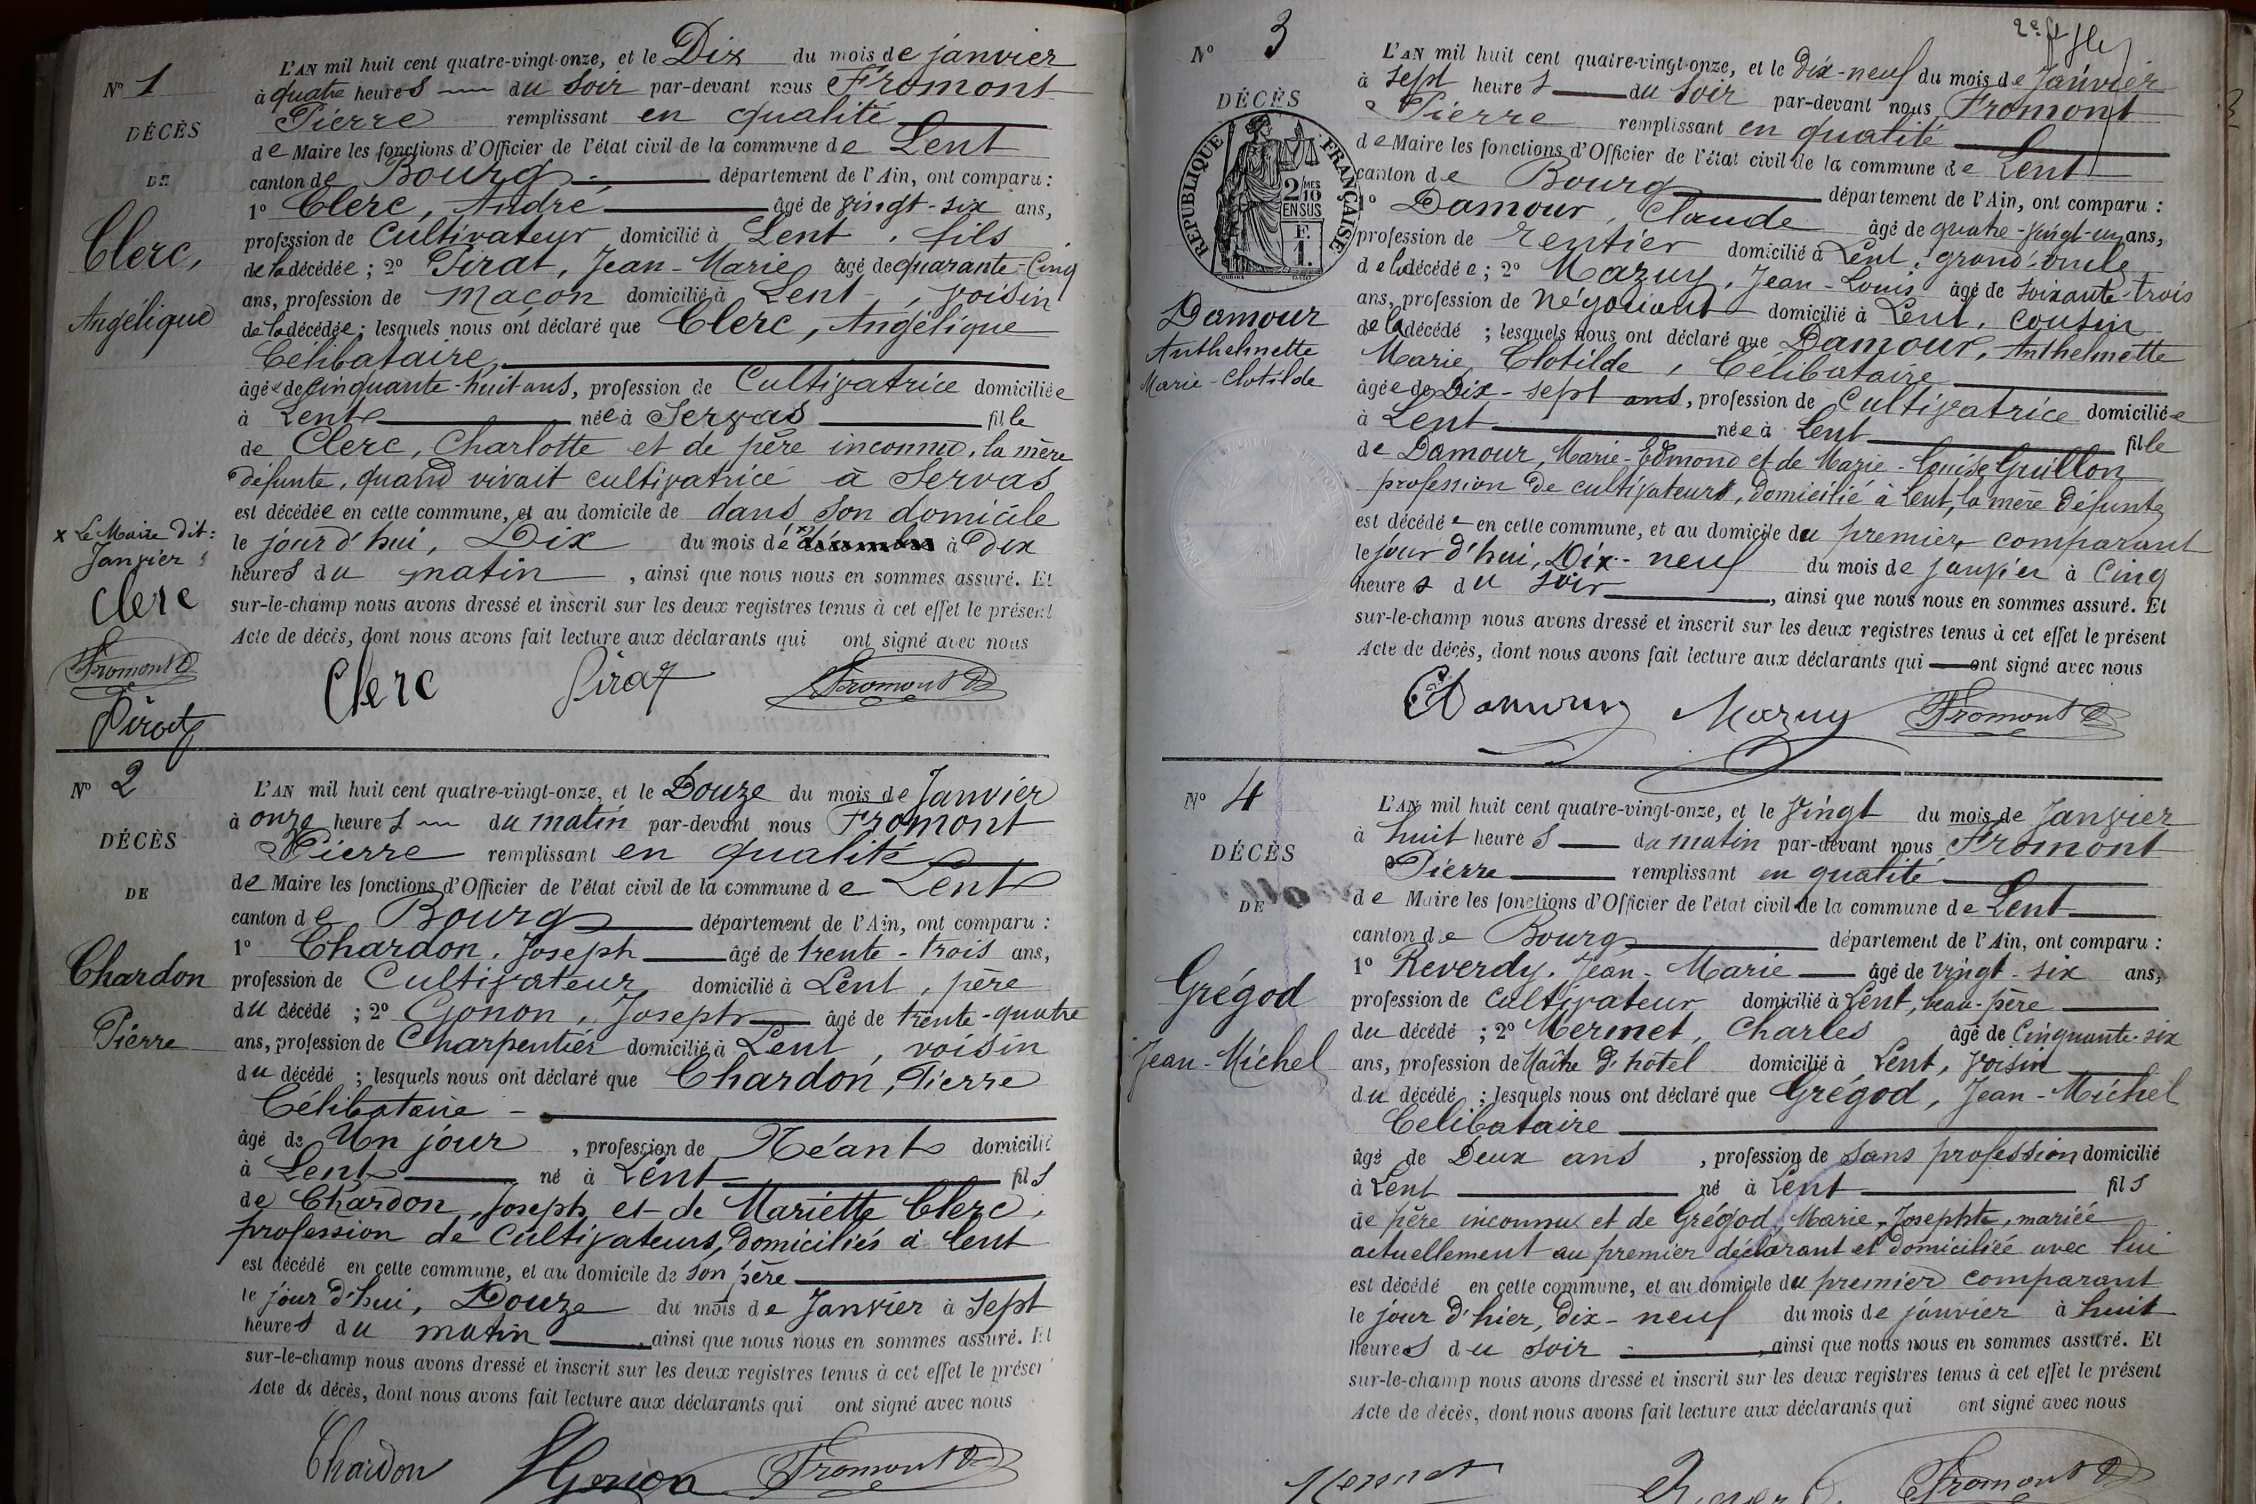 Nº 1
DÉCÈS
DE
Clerc,
Angélique
L'AN mil huit cent quatre-vingt-onze, et le Dix du mois de janvier
à quatre heures du soir par-devant nous Fromont
Pierre remplissant en qualité
de Maire les fonctions d'Officier de l'état civil de la commune de Lent
canton de Bourg département de l'Ain, ont comparu :
1º Clerc, André âgé de vingt-six ans,
profession de Cultivateur domicilié à Lent, fils
de la décédée ; 2º Pirat, Jean-Marie âgé de quarante-cinq
ans, profession de maçon domicilié à Lent, voisin
de la décédée ; lesquels nous ont déclaré que Clerc, Angélique
Célibataire
âgée de cinquante-huit ans, profession de Cultivatrice domiciliée
à Lent née à Servas fille
de Clerc, Charlotte et de père inconnu, la mère
défunte, quand vivait cultivatrice à Servas
est décédée en cette commune, et au domicile de dans son domicile
le jour d'hui, Dix du mois de (x) à Dix
heures du matin, ainsi que nous nous en sommes assuré. Et
sur-le-champ nous avons dressé et inscrit sur les deux registres tenus à cet effet le présent
Acte de décès, dont nous avons fait lecture aux déclarants qui ont signé avec nous
x Le Maire dit :
Janvier
Clerc
Fromont P
Pirat
Clerc Pirat Fromont P
Nº 2
DÉCÈS
DE
Chardon
Pierre
L'AN mil huit cent quatre-vingt-onze, et le Douze du mois de Janvier
à onze heures du matin par-devant nous Fromont
Pierre remplissant en qualité
de Maire les fonctions d'Officier de l'état civil de la commune de Lent
canton de Bourg département de l'Ain, ont comparu :
1º Chardon, Joseph âgé de trente-trois ans,
profession de Cultivateur domicilié à Lent, père
du décédé ; 2º Gonon, Joseph âgé de trente-quatre
ans, profession de Charpentier domicilié à Lent, voisin
du décédé ; lesquels nous ont déclaré que Chardon, Pierre
Célibataire
âgé de Un jour, profession de Néant domicilié
à Lent né à Lent fils
de Chardon, Joseph et de Mariette Clerc,
profession de Cultivateurs, domiciliés à Lent
est décédé en cette commune, et au domicile de son père
le jour d'hui, Douze du mois de Janvier à sept
heures du matin, ainsi que nous nous en sommes assuré. Et
sur-le-champ nous avons dressé et inscrit sur les deux registres tenus à cet effet le présen
Acte de décès, dont nous avons fait lecture aux déclarants qui ont signé avec nous
Chardon Gonon Fromont P
Nº 3
DÉCÈS
RÉPUBLIQUE FRANÇAISE
2/10 MES
EN SUS
F.
1.
Damour
Anthelmette
Marie-Clotilde
L'AN mil huit cent quatre-vingt-onze, et le dix-neuf du mois de Janvier
à sept heures du soir par-devant nous Fromont
Pierre remplissant en qualité
de Maire les fonctions d'Officier de l'état civil de la commune de Lent
canton de Bourg département de l'Ain, ont comparu :
1º Damour, Claude âgé de quatre-vingt-un ans,
profession de rentier domicilié à Lent, grand-oncle
de la décédée ; 2º Mazuy, Jean-Louis âgé de soixante-trois
ans, profession de négociant domicilié à Lent, cousin
de la décédé ; lesquels nous ont déclaré que Damour, Anthelmette
Marie Clotilde, Célibataire
âgée de Dix-sept ans, profession de Cultivatrice domiciliée
à Lent née à Lent fille
de Damour, Marie-Edmond et de Marie-Louise Guillon
profession de cultivateurs, domicilié à Lent, la mère défunte
est décédée en cette commune, et au domicile du premier comparant
le jour d'hui, Dix-neuf du mois de janvier à Cinq
heures du soir, ainsi que nous nous en sommes assuré. Et
sur-le-champ nous avons dressé et inscrit sur les deux registres tenus à cet effet le présent
Acte de décès, dont nous avons fait lecture aux déclarants qui ont signé avec nous
Damour Mazuy Fromont P
Nº 4
DÉCÈS
DE
Grégod
Jean-Michel
L'AN mil huit cent quatre-vingt-onze, et le Vingt du mois de Janvier
à huit heures du matin par-devant nous Fromont
Pierre remplissant en qualité
de Maire les fonctions d'Officier de l'état civil de la commune de Lent
canton de Bourg département de l'Ain, ont comparu :
1º Reverdy, Jean-Marie âgé de vingt-six ans,
profession de Cultivateur domicilié à Lent, beau-père
du décédé ; 2º Mermet, Charles âgé de Cinquante-six
ans, profession de Maître d'hôtel domicilié à Lent, voisin
du décédé ; lesquels nous ont déclaré que Grégod, Jean-Michel
Célibataire
âgé de Deux ans, profession de sans profession domicilié
à Lent né à Lent fils
de père inconnu et de Grégod, Marie-Josephte, mariée
actuellement au premier déclarant et domiciliée avec lui
est décédé en cette commune, et au domicile du premier comparant
le jour d'hier, dix-neuf du mois de janvier à huit
heures du soir, ainsi que nous nous en sommes assuré. Et
sur-le-champ nous avons dressé et inscrit sur les deux registres tenus à cet effet le présent
Acte de décès, dont nous avons fait lecture aux déclarants qui ont signé avec nous
Mermet Fromont P